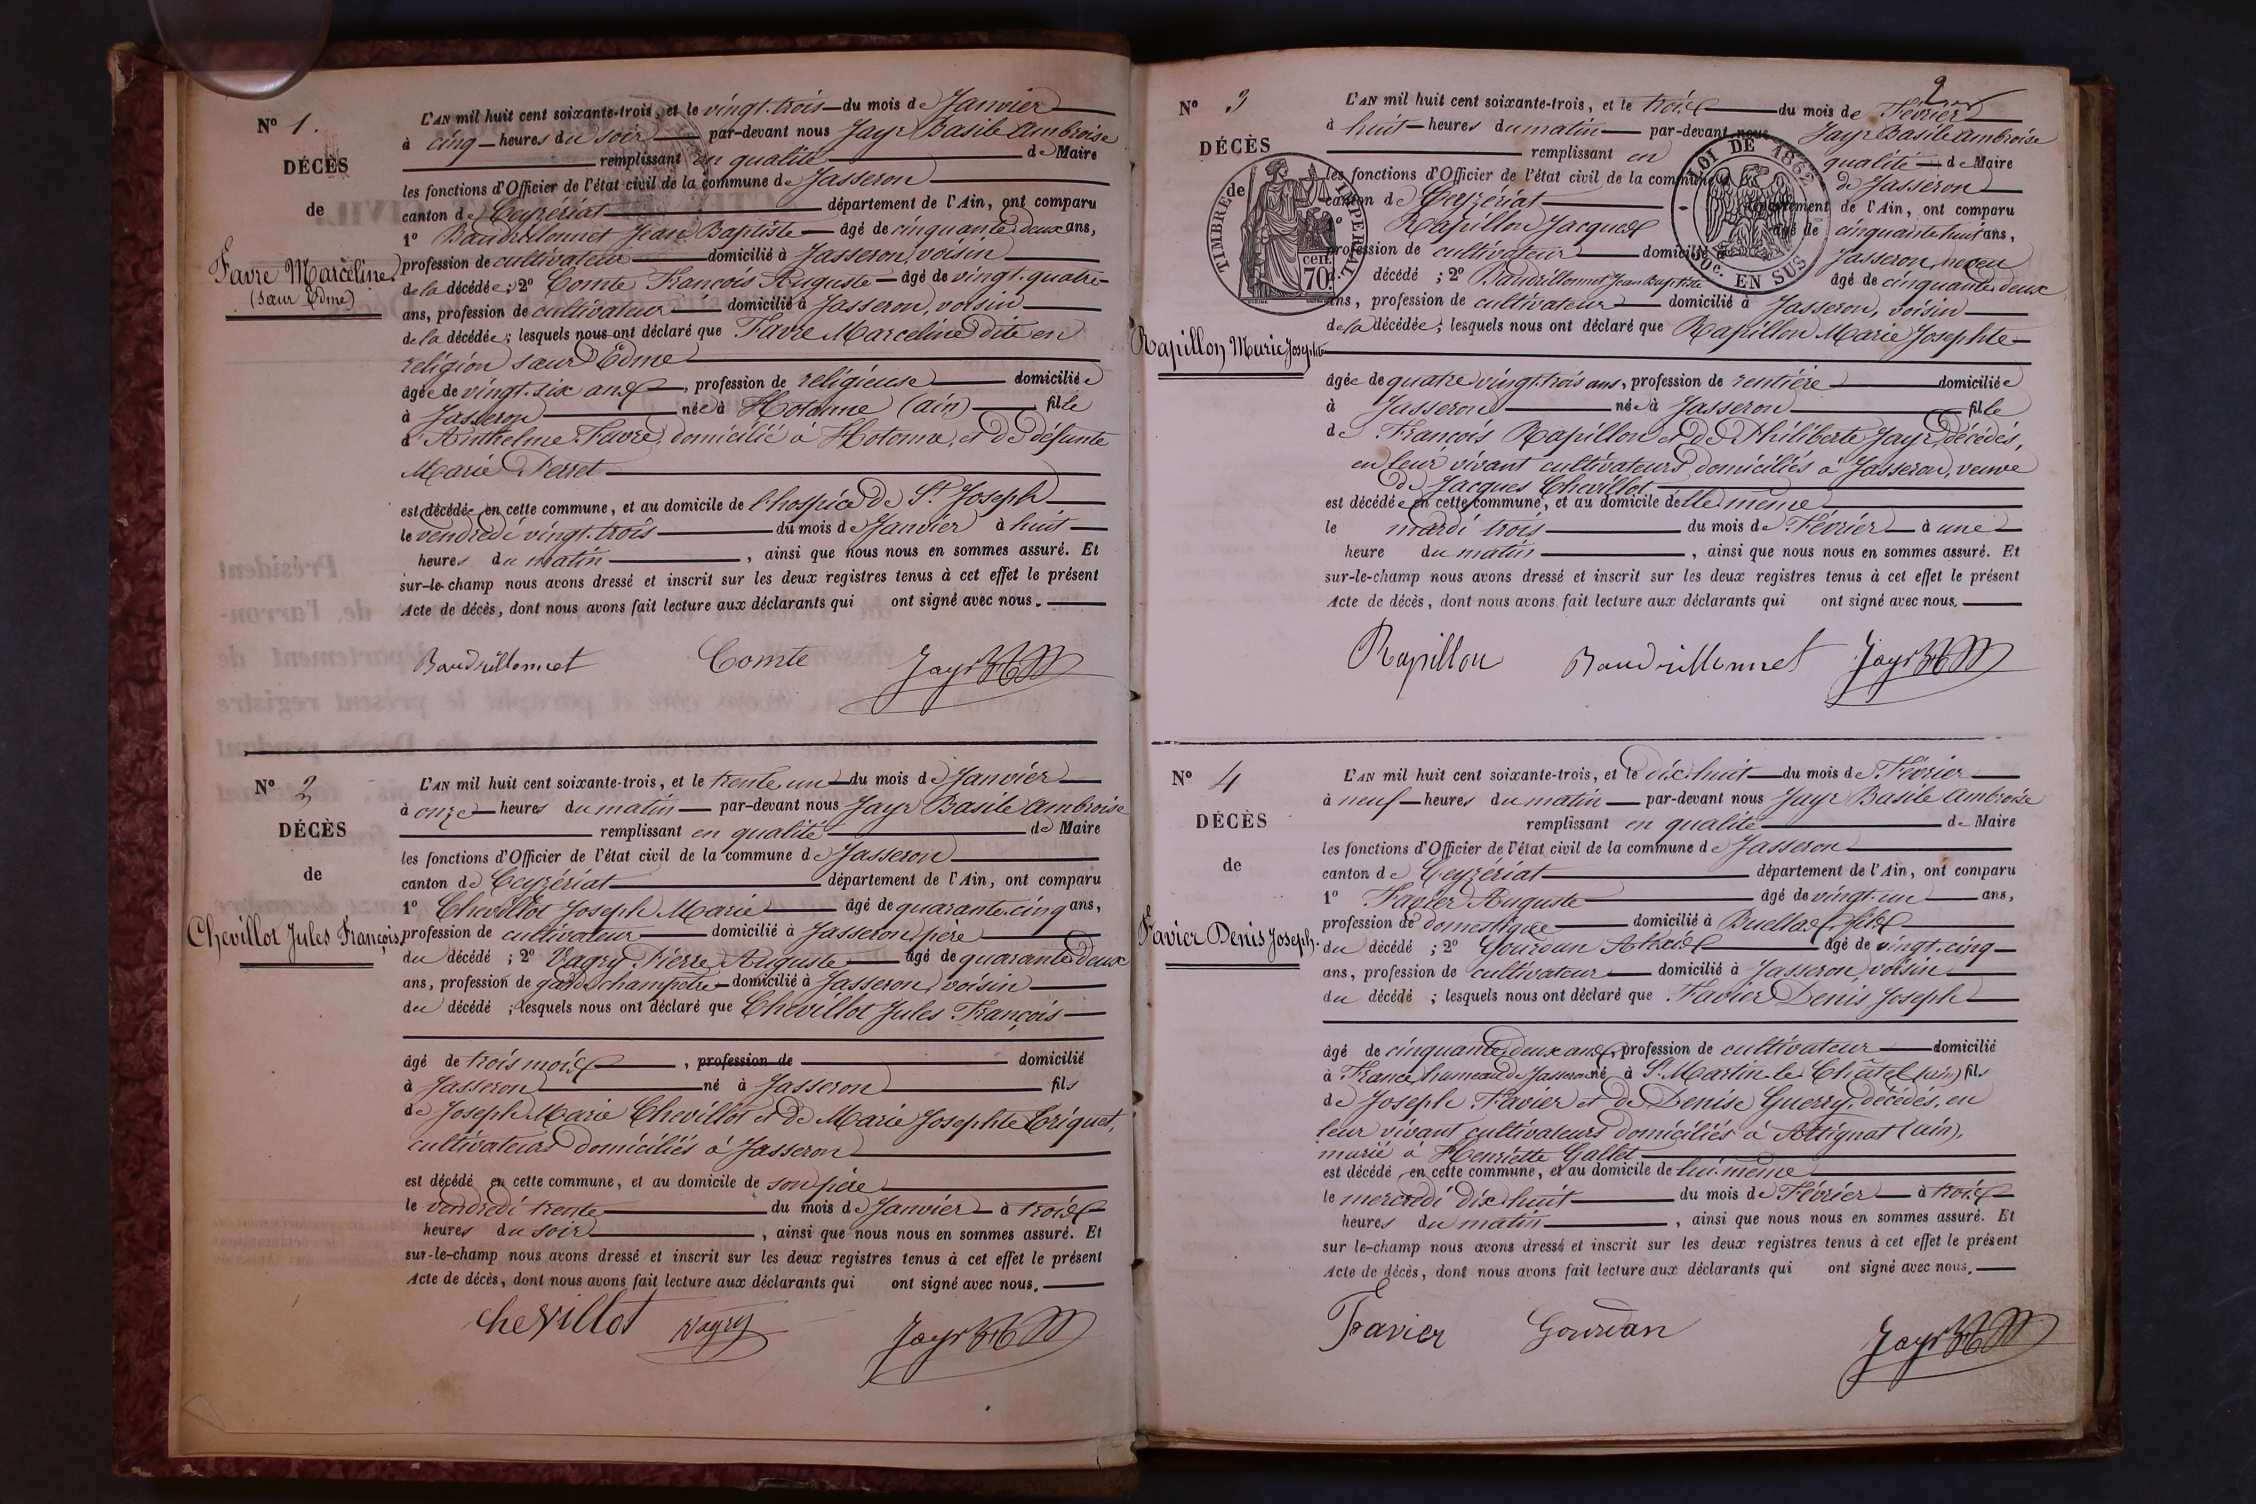 N° 1.
DÉCÈS
de
Favre Marceline
(sœur Edme)
L'AN mil huit cent soixante-trois, et le vingt-trois du mois de Janvier
à cinq heures du soir par-devant nous Jayr Basile Ambroise
remplissant en qualité de Maire
les fonctions d'Officier de l'état civil de la commune de Jasseron
canton de Ceyzériat département de l'Ain, ont comparu
1° Baudrillonnet Jean Baptiste âgé de cinquante deux ans,
profession de cultivateur domicilié à Jasseron, voisin
de la décédée; 2° Comte François Auguste âgé de vingt-quatre
ans, profession de cultivateur domicilié à Jasseron, voisin
de la décédée; lesquels nous ont déclaré que Favre Marceline dite en
religion sœur Edme
âgée de vingt-six ans, profession de religieuse domiciliée
à Jasseron née à Hotonne (ain) fille
d'Anthelme Favre, domicilié à Hotonne, et de défunte
Marie Perret
est décédée en cette commune, et au domicile de l'hospice de St Joseph
le vendredi vingt-trois du mois de Janvier à huit
heures du matin, ainsi que nous nous en sommes assuré. Et
sur-le-champ nous avons dressé et inscrit sur les deux registres tenus à cet effet le présent
Acte de décès, dont nous avons fait lecture aux déclarants qui ont signé avec nous.
Baudrillonnet Comte Jayr
N° 2
DÉCÈS
de
Chevillot Jules François
L'AN mil huit cent soixante-trois, et le trente un du mois de Janvier
à onze heures du matin par-devant nous Jayr Basile Ambroise
remplissant en qualité de Maire
les fonctions d'Officier de l'état civil de la commune de Jasseron
canton de Ceyzériat département de l'Ain, ont comparu
1° Chevillot Joseph Marie âgé de quarante-cinq ans,
profession de cultivateur domicilié à Jasseron, père
du décédé; 2° Vagry Pierre Auguste âgé de quarante deux
ans, profession de garde champêtre domicilié à Jasseron, voisin
du décédé; lesquels nous ont déclaré que Chevillot Jules François
âgé de trois mois, profession de domicilié
à Jasseron né à Jasseron fils
de Joseph Marie Chevillot et de Marie Josephte Triquet,
cultivateurs domiciliés à Jasseron
est décédé en cette commune, et au domicile de son père
le vendredi trente du mois de Janvier à trois
heures du soir, ainsi que nous nous en sommes assuré. Et
sur-le-champ nous avons dressé et inscrit sur les deux registres tenus à cet effet le présent
Acte de décès, dont nous avons fait lecture aux déclarants qui ont signé avec nous.
Chevillot Vagry Jayr
2
N° 3
DÉCÈS
TIMBRE IMPERIAL
de
70 cen.
LOI DE 1862
10c. EN SUS
Rapillon Marie Josephte
L'AN mil huit cent soixante-trois, et le trois du mois de Février
à huit heures du matin par-devant nous Jayr Basile Ambroise
remplissant en qualité de Maire
les fonctions d'Officier de l'état civil de la commune de Jasseron
canton de Ceyzériat département de l'Ain, ont comparu
Rapillon Jacques âgé de cinquante huit ans,
profession de cultivateur domicilié à Jasseron, neveu
décédé; 2° Baudrillonnet Jean Baptiste âgé de cinquante deux
ans, profession de cultivateur domicilié à Jasseron, voisin
de la décédée; lesquels nous ont déclaré que Rapillon Marie Josephte
âgée de quatre vingt-trois ans, profession de rentière domiciliée
à Jasseron née à Jasseron fille
de François Rapillon et de Philiberte Jayr, décédés,
en leur vivant cultivateurs domiciliés à Jasseron, veuve
de Jacques Chevillot
est décédée en cette commune, et au domicile d'elle même
le mardi trois du mois de Février à une
heure du matin, ainsi que nous nous en sommes assuré. Et
sur-le-champ nous avons dressé et inscrit sur les deux registres tenus à cet effet le présent
Acte de décès, dont nous avons fait lecture aux déclarants qui ont signé avec nous.
Rapillon Baudrillonnet Jayr
N° 4
DÉCÈS
de
Favier Denis Joseph.
L'AN mil huit cent soixante-trois, et le dix-huit du mois de Février
à neuf heures du matin par-devant nous Jayr Basile Ambroise
remplissant en qualité de Maire
les fonctions d'Officier de l'état civil de la commune de Jasseron
canton de Ceyzériat département de l'Ain, ont comparu
1° Favier Auguste âgé de vingt-un ans,
profession de domestique domicilié à Buellas, fils
du décédé; 2° Gourdan Alexis âgé de vingt-cinq
ans, profession de cultivateur domicilié à Jasseron, voisin
du décédé; lesquels nous ont déclaré que Favier Denis Joseph
âgé de cinquante-deux ans, profession de cultivateur domicilié
à France, hameau de Jasseron né à St Martin le Châtel (ain) fils
de Joseph Favier et de Denise Guerry, décédés, en
leur vivant cultivateurs domiciliés à Attignat (ain),
marié à Henriette Gallet
est décédé en cette commune, et au domicile de lui-même
le mercredi dix-huit du mois de Février à trois
heures du matin, ainsi que nous nous en sommes assuré. Et
sur le-champ nous avons dressé et inscrit sur les deux registres tenus à cet effet le présent
Acte de décès, dont nous avons fait lecture aux déclarants qui ont signé avec nous.
Favier Gourdan Jayr